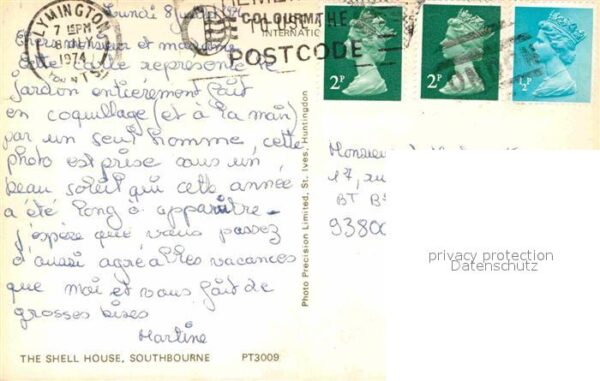 Lundi 8 juillet 74
Chers monsieur et madame
cette carte représente le
jardin entièrement fait
en coquillage (et à la main)
par un seul homme, cette
photo est prise sous un
beau soleil qui cette année
a été long à apparaître
j'espère que vous passez
d'aussi agréables vacances
que moi et vous fait de
grosses bises
Martine
THE SHELL HOUSE, SOUTHBOURNE PT3009
Photo Precision Limited, St. Ives, Huntingdon
LYMINGTON
7 PM
1974
HANTS
COLOURMA
INTERNATIC
THE
POSTCODE
2P
2P
½P
Monsieur
17, ru
BT B
93800
privacy protection
Datenschutz